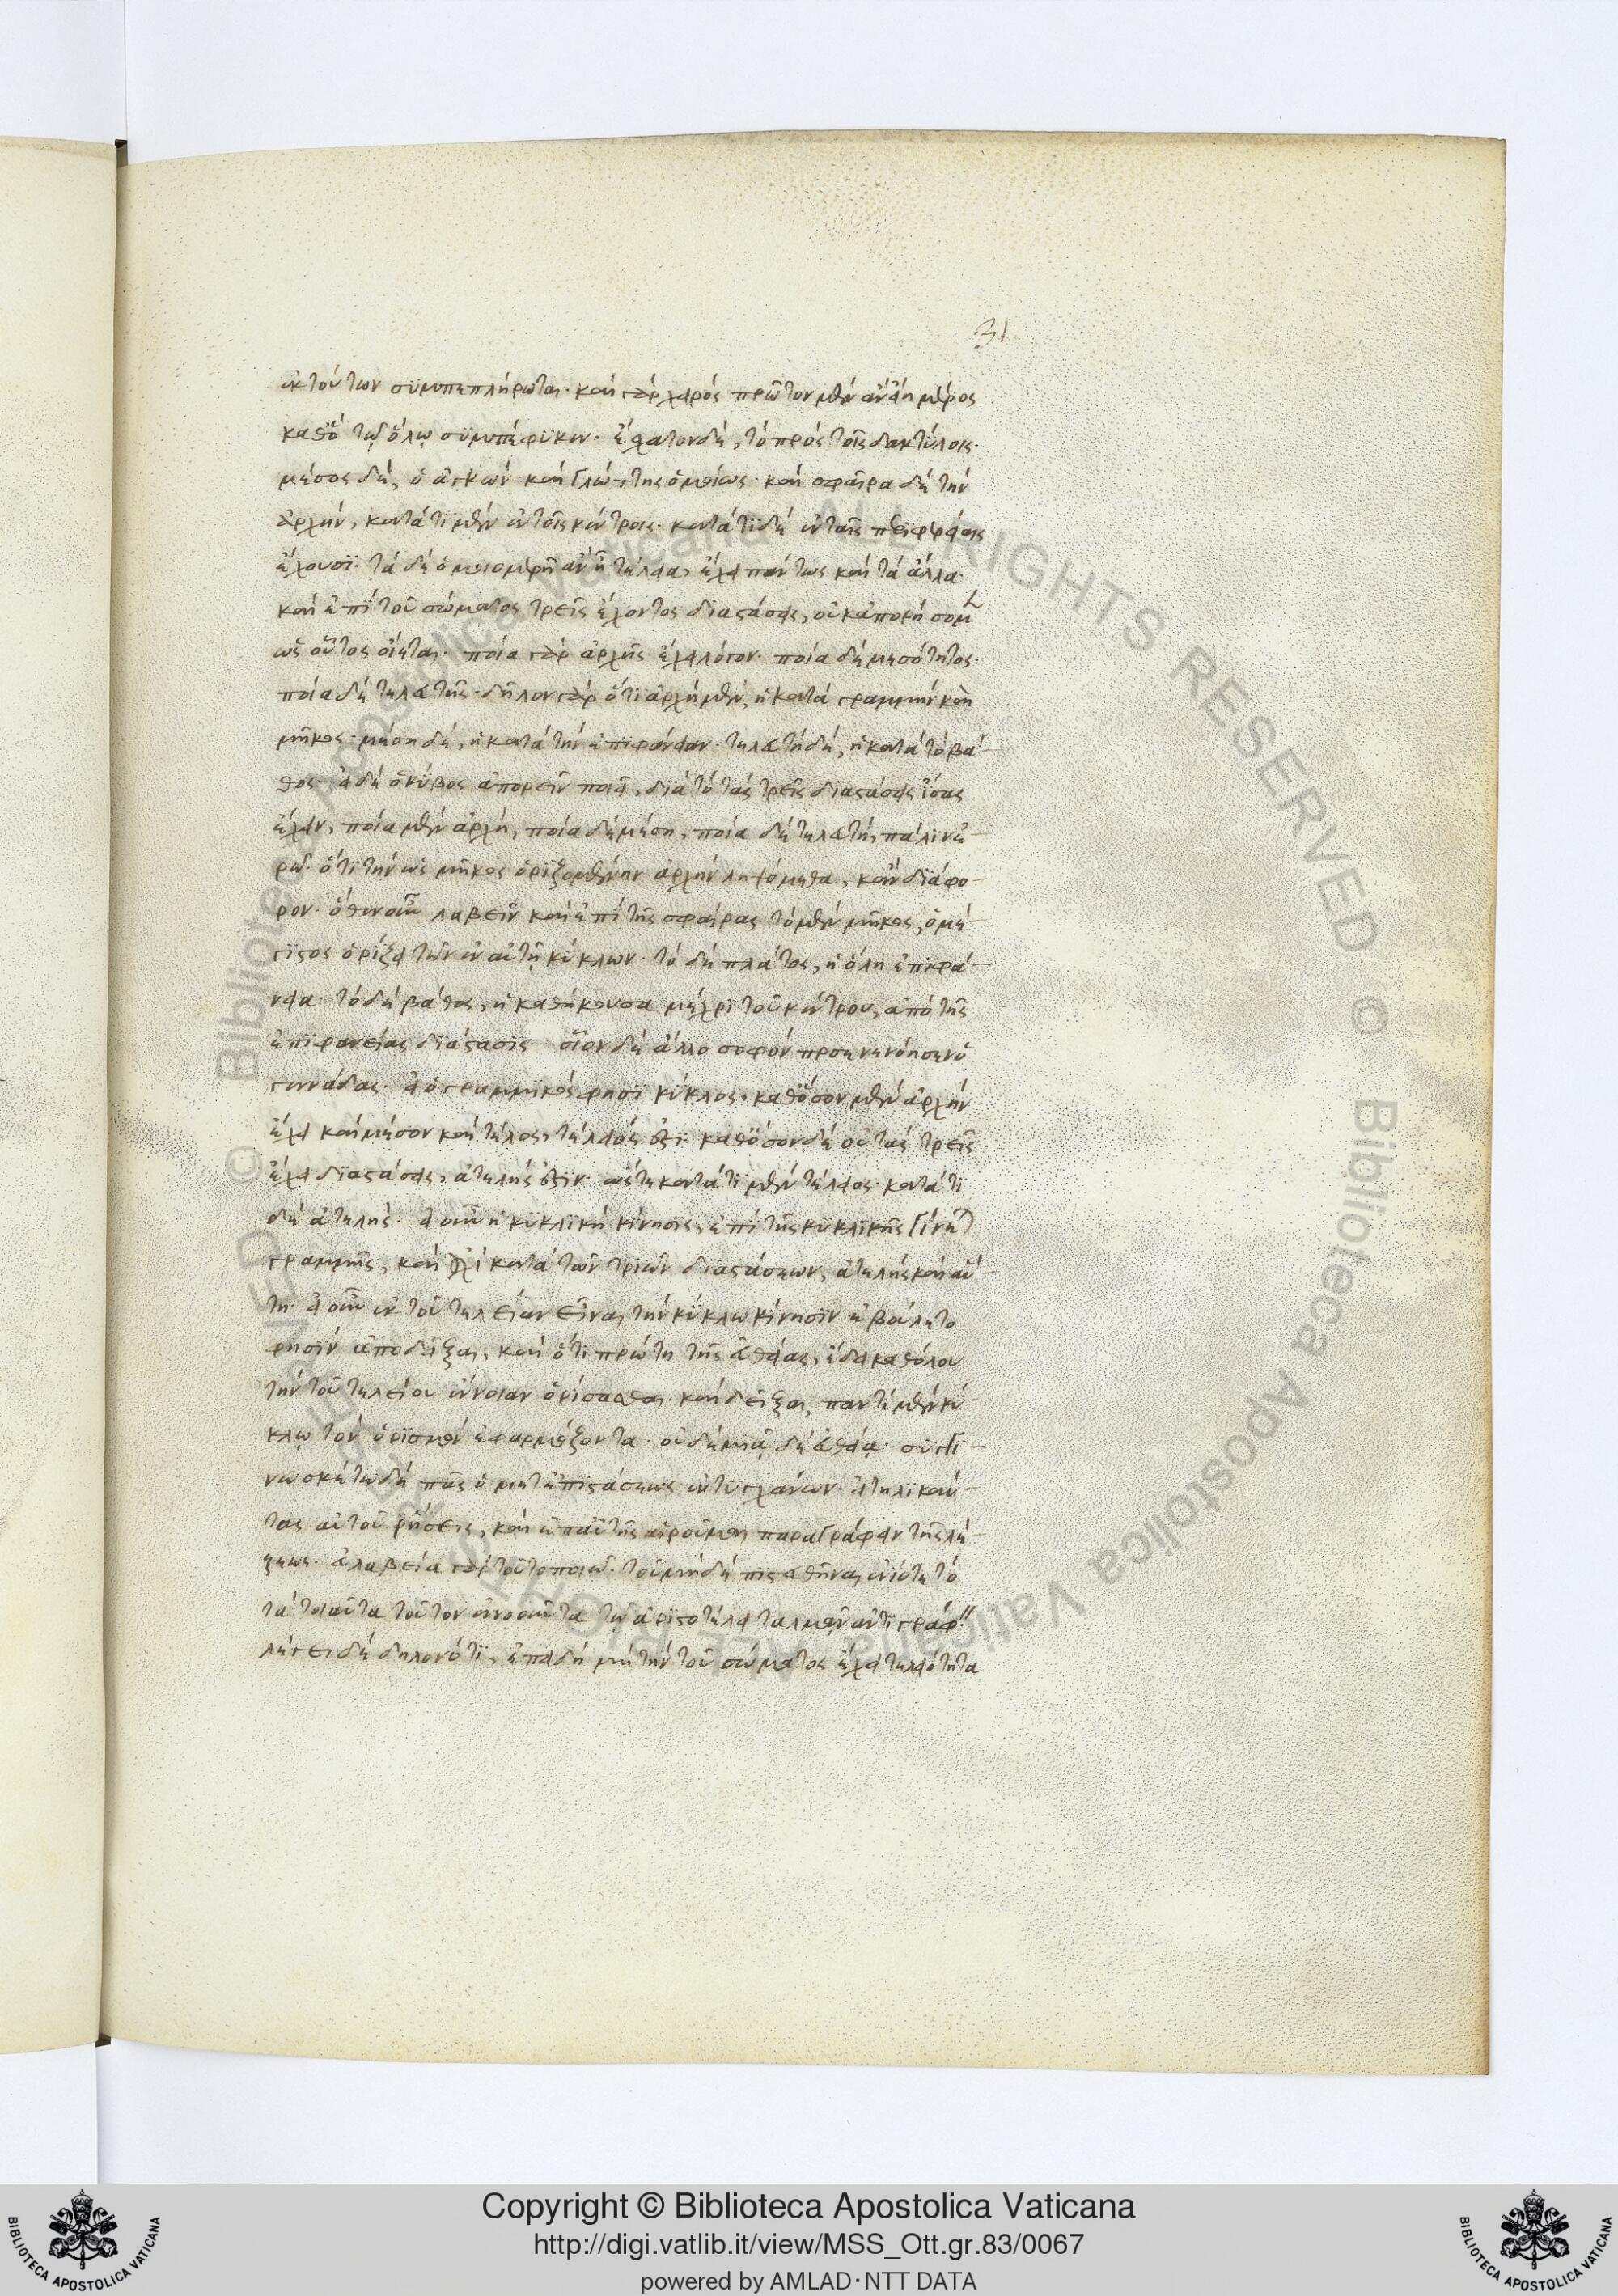 31
ἐκ τούτων συμπεπλήρωται· καὶ γὰρ χειρὸς πρῶτον μὲν ἂν εἴη μέρος
καθὸ τῷ ὅλῳ συμπέφυκεν· ἔσχατον δὲ, τὸ πρὸς τοῖς δακτύλοις·
μέσος δὲ, ὁ ἀγκών· καὶ γλώττης ὁμοίως· καὶ σφαῖρα δὲ τὴν
ἀρχὴν, κατά τι μὲν ἐν τοῖς κέντροις· κατά τι δὲ ἐν ταῖς περιφερείαις
ἔχουσι· τὰ δὲ ὁμοιομερῆ ἂν ᾖ τέλεια, ἔχει πάντως καὶ τὰ ἄλλα·
καὶ ἐπὶ τοῦ σώματος τρεῖς ἔχοντος διαστάσεις, οὐκ ἀπορήσομεν
ὡς οὗτος οἴεται· ποία γὰρ ἀρχῆς ἔχει λόγον· ποία δὲ μεσότητος·
ποία δὲ τελευτῆς· δῆλον γὰρ ὅτι ἀρχὴ μὲν, ἡ κατὰ γραμμὴν καὶ
μῆκος· μέση δὲ, ἡ κατὰ τὴν ἐπιφάνειαν· τελευτὴ δὲ, ἡ κατὰ τὸ βά-
θος· εἰ δὲ ὁ κύβος ἀπορεῖν ποιεῖ, διὰ τὸ τὰς τρεῖς διαστάσεις ἴσας
ἔχειν, ποία μὲν ἀρχὴ, ποία δὲ μέση, ποία δὲ τελευτὴ, πάλιν ἐ-
ρῶ· ὅτι τὴν ὡς μῆκος ὁριζομένην ἀρχὴν ληψόμεθα, κἂν διάφο-
ρον· ὅθεν οὖν λαβεῖν καὶ ἐπὶ τῆς σφαίρας· τὸ μὲν μῆκος, ὁ μέ-
γιστος ὁρίζει τῶν ἐν αὐτῇ κύκλων· τὸ δὲ πλάτος, ἡ ὅλη ἐπιφά-
νεια· τὸ δὲ βάθος, ἡ καθήκουσα μέχρι τοῦ κέντρου, ἀπὸ τῆς
ἐπιφανείας διάστασις· οἷον δὲ ἄλλο σοφὸν προσενενόησεν ὁ
γεννάδας· εἰ ὁ γραμμικός φησι κύκλος, καθ' ὅσον μὲν ἀρχὴν
ἔχει καὶ μέσον καὶ τέλος, τέλειός ἐστι· καθ' ὅσον δὲ οὐ τὰς τρεῖς
ἔχει διαστάσεις, ἀτελής ἐστιν· ὥστε κατά τι μὲν τέλειος· κατά τι
δὲ ἀτελής· εἰ οὖν ἡ κυκλικὴ κίνησις, ἐπὶ τῆς κυκλικῆς γίνεται
γραμμῆς, καὶ οὐχὶ κατὰ τῶν τριῶν διαστάσεων, ἀτελὴς καὶ αὕ-
τη· εἰ οὖν ἐκ τοῦ τελείαν εἶναι τὴν κύκλῳ κίνησιν ἐβούλετο
φησὶν ἀποδεῖξαι, καὶ ὅτι πρώτη τῆς εὐθείας, ἔδει καθόλου
τὴν τοῦ τελείου ἔννοιαν ὁρίσασθαι· καὶ δεῖξαι, παντὶ μὲν κύ-
κλῳ τὸν ὁρισμὸν ἐφαρμόζοντα· οὐδεμιᾷ δὲ εὐθείᾳ· συγγι-
νωσκέτω δὲ πᾶς ὁ μετ' ἐπιστάσεως ἐντυγχάνων· εἰ τηλικαύ-
τας αὐτοῦ ῥήσεις, καὶ ἐπ' αὐτῆς αἱροῦμαι παραγράφειν τῆς λέ-
ξεως· εὐλαβείᾳ γὰρ τοῦτο ποιῶ· τοῦ μηδὲ πιστευθῆναι ἐνίοτε τὸ
τὰ τοιαῦτα τοῦτον ἐννοοῦντα τῷ ἀριστοτέλει τολμᾶν ἀντιγράφειν
λέγει δὲ δηλονότι, ἐπειδὴ μὴ τὴν τοῦ σώματος ἔχει τελειότητα
Copyright © Biblioteca Apostolica Vaticana
http://digi.vatlib.it/view/MSS_Ott.gr.83/0067
powered by AMLAD·NTT DATA